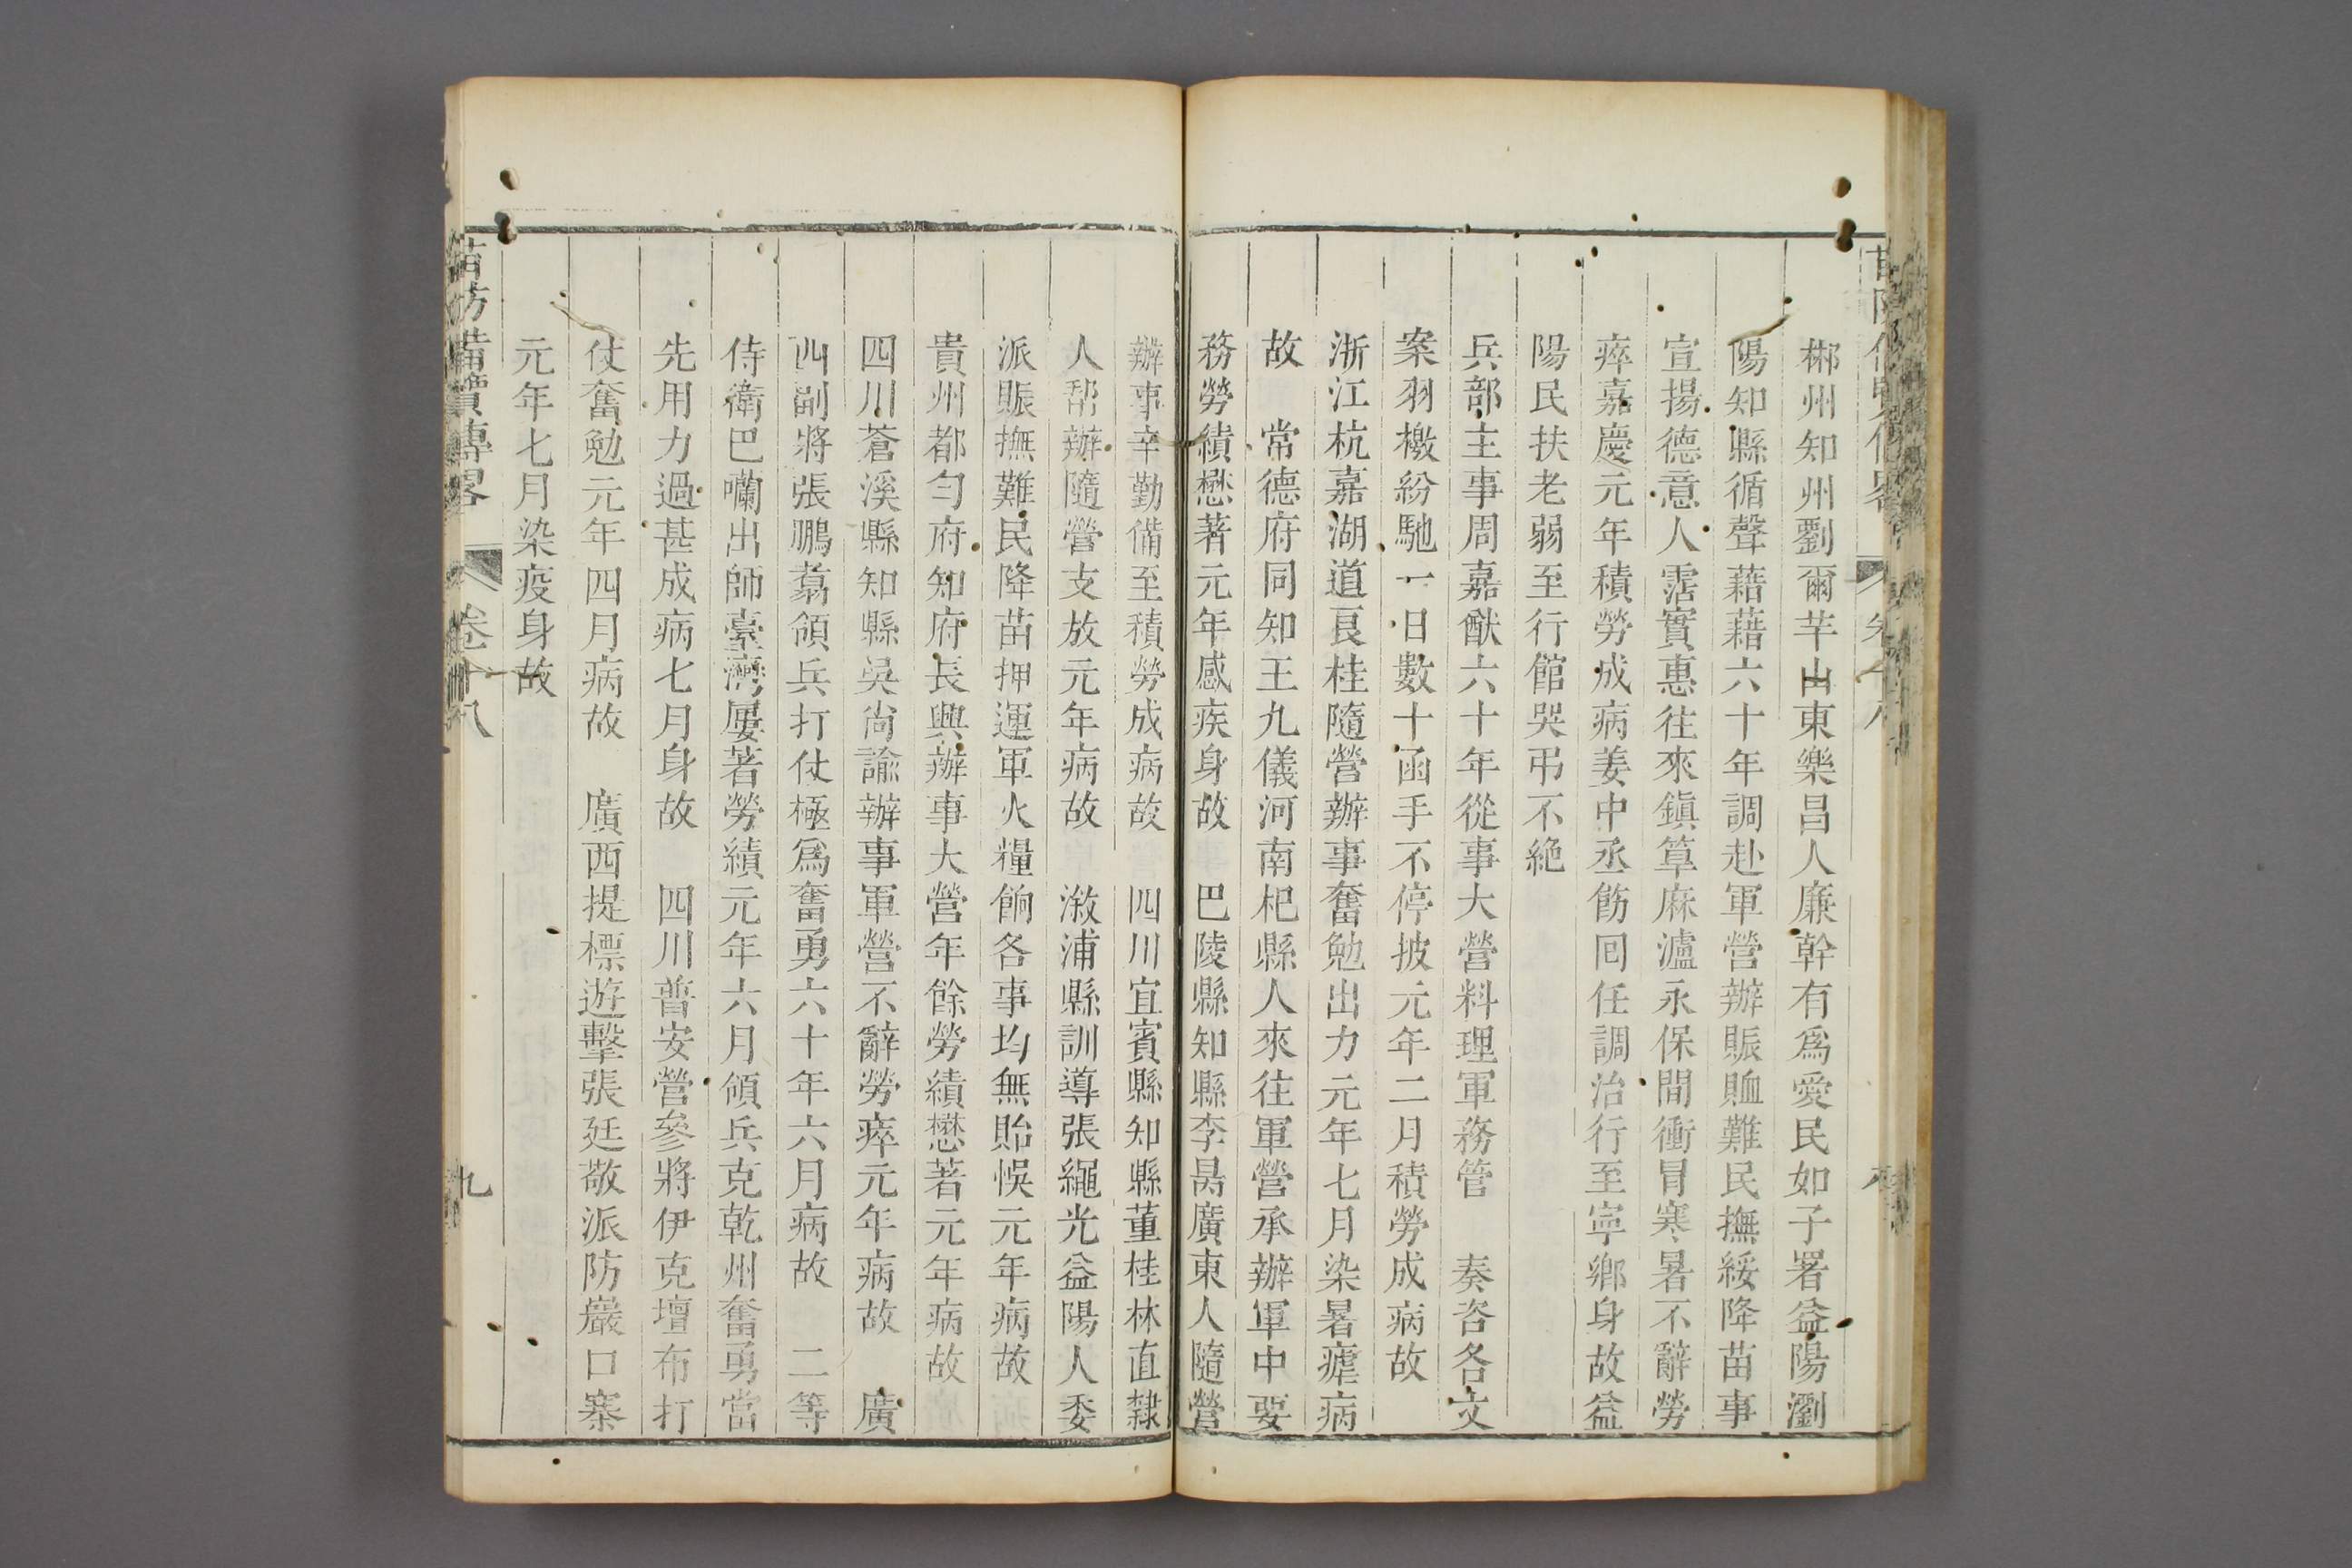 郴州知州劉爾芊山東樂昌人廉幹有爲愛民如子署益陽瀏
陽知縣循聲藉藉六十年調赴軍營辦賑䘏難民撫綏降苗事
宣揚德意人霑實惠往來鎭筸麻瀘永保間衝冒寒暑不辭勞
瘁嘉慶元年積勞成病姜中丞飭囘任調治行至寜鄉身故益
陽民扶老弱至行館哭弔不絶
兵部主事周嘉猷六十年從事大營料理軍務管　奏咨各文
案羽檄紛馳一日數十函手不停披元年二月積勞成病故
浙江杭嘉湖道良桂隨營辦事奮勉出力元年七月染暑瘧病
故　常德府同知王九儀河南杞縣人來往軍營承辦軍中要
務勞績懋著元年感疾身故　巴陵縣知縣李昺廣東人隨營
辦事辛勤備至積勞成病故　四川宜賓縣知縣董桂林直隸
人幫辦隨營支放元年病故　漵浦縣訓導張繩光益陽人委
派賑撫難民降苗押運軍火糧餉各事均無貽悞元年病故
貴州都勻府知府長興辦事大營年餘勞績懋著元年病故
四川蒼溪縣知縣吳尙諭辦事軍營不辭勞瘁元年病故　廣
西副將張鵬翥領兵打仗極爲奮勇六十年六月病故　二等
侍衛巴囒出師臺灣屢著勞績元年六月領兵克乾州奮勇當
先用力過甚成病七月身故　四川普安營參將伊克壇布打
仗奮勉元年四月病故　廣西提標遊擊張廷敬派防巖口寨
元年七月染疫身故
苗防備覽傳畧　卷十八　九